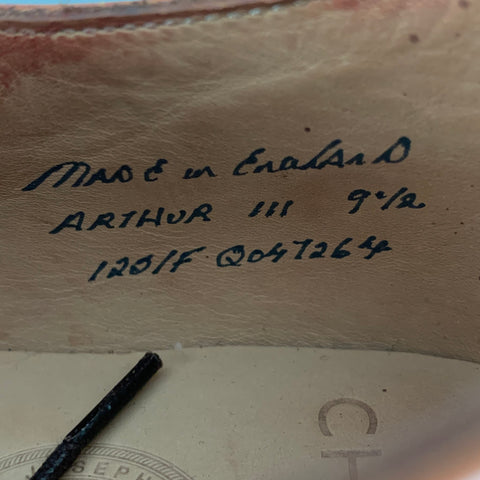 MADE in EnGLAnD
ARTHUR III 9½
1201F Q047264
JOSEPH
CH